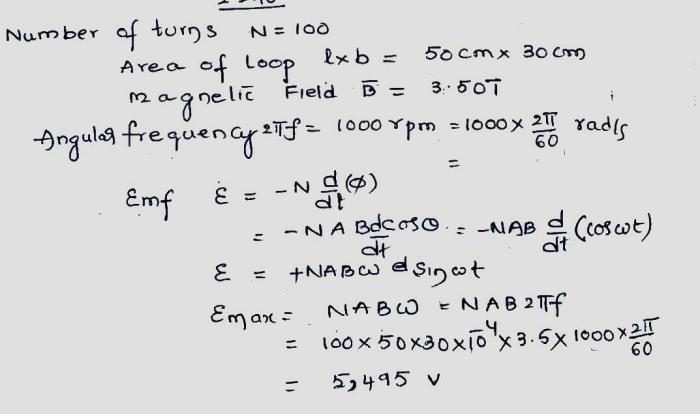 Number of turns N = 100
Area of Loop l×b = 50cm × 30cm
magnetic Field B̄ = 3.50T
Angular frequency 2πf = 1000 rpm = 1000 × 2π/60 rad/s
=
Emf ε = -N d/dt (φ)
= -NA Bdcosθ/dt = -NAB d/dt (cosωt)
ε = +NABω d sinωt
Emax = NABω = NAB2πf
= 100 × 50×30×10⁻⁴ × 3.5 × 1000 × 2π/60
= 5,495 V